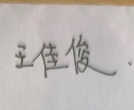 王佳俊.